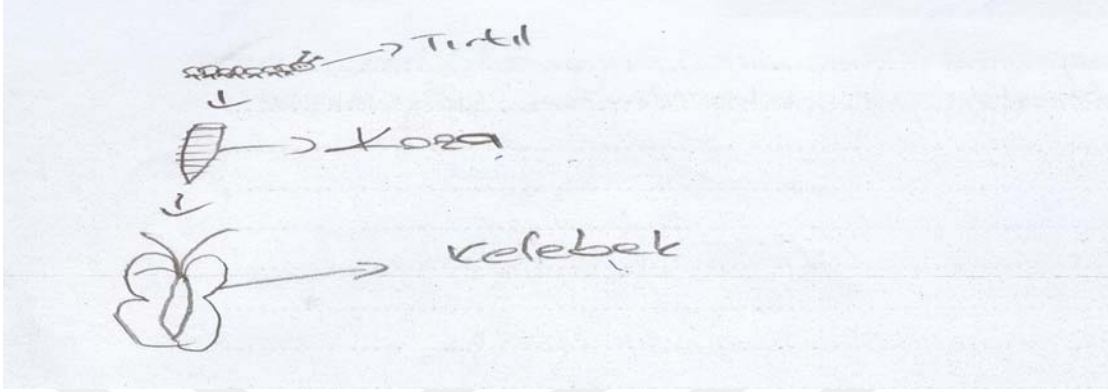 Tırtıl
Koza
Kelebek